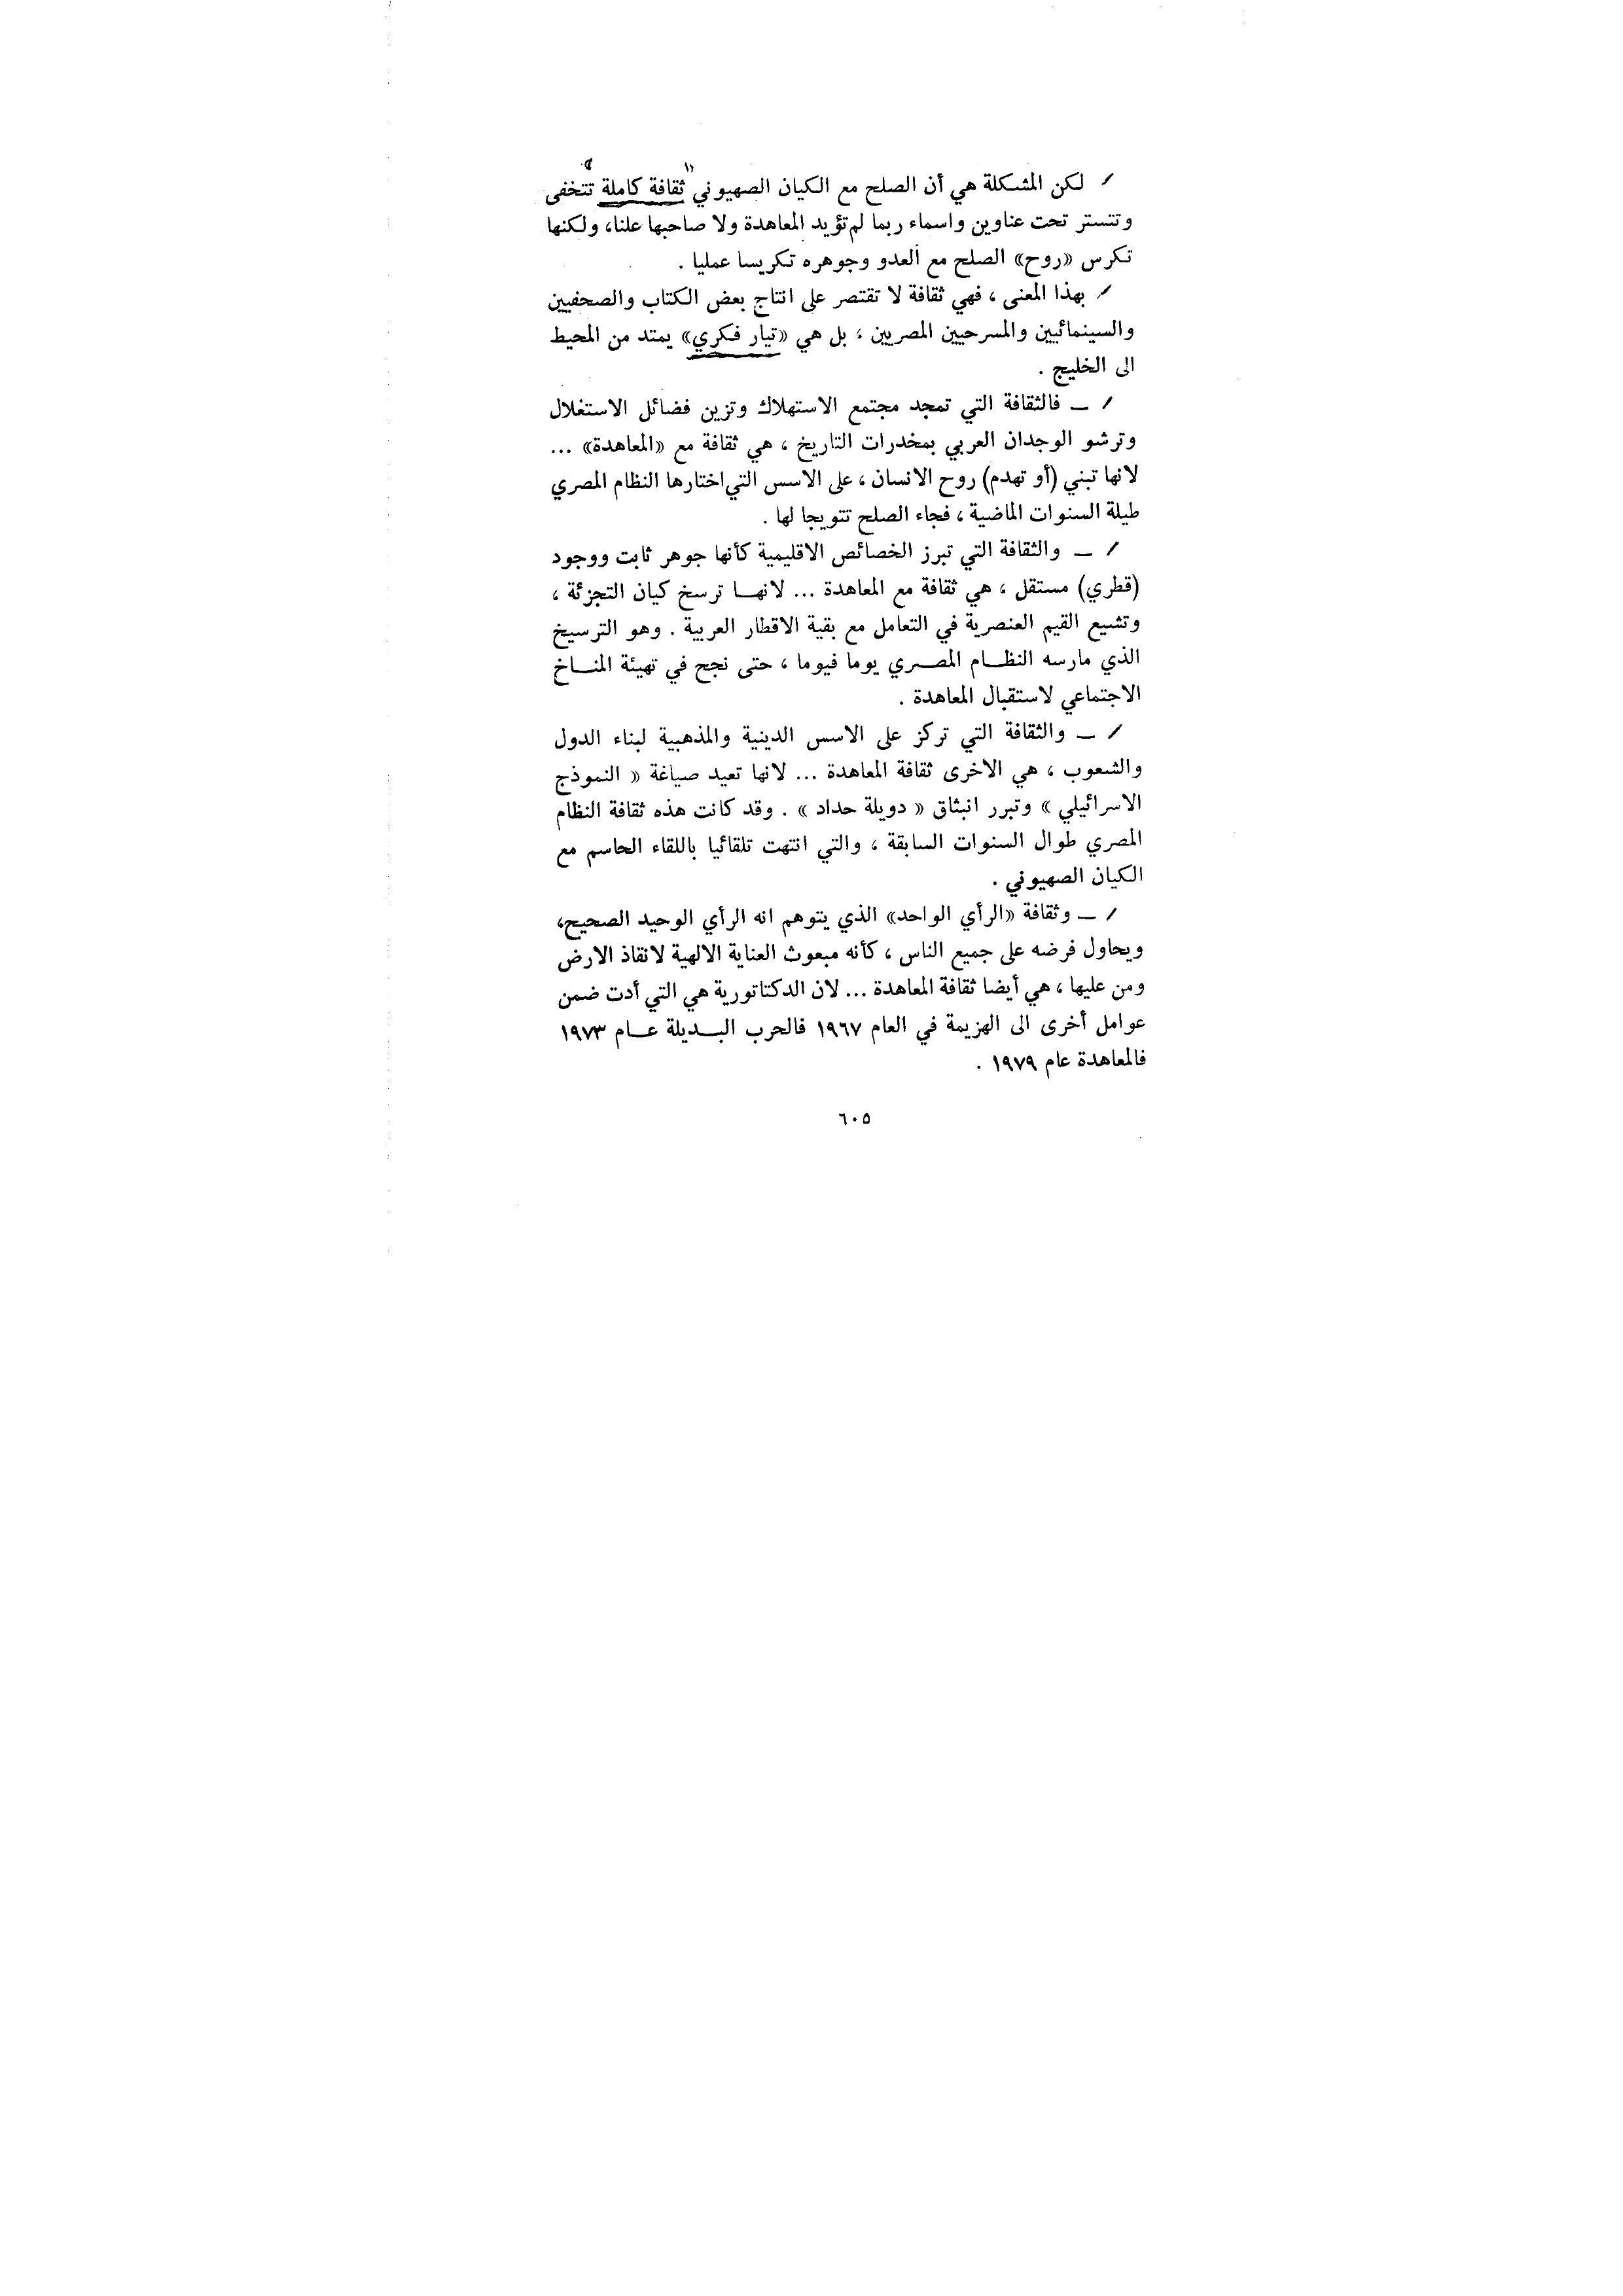 لكن المشكلة هي أن الصلح مع الكيان الصهيوني "ثقافة كاملة" تتخفى
وتتستر تحت عناوين واسماء ربما لم تؤيد المعاهدة ولا صاحبها علنا، ولكنها
تكرس «روح» الصلح مع العدو وجوهره تكريسا عمليا .
بهذا المعنى ، فهي ثقافة لا تقتصر على انتاج بعض الكتاب والصحفيين
والسينمائيين والمسرحيين المصريين ، بل هي «تيار فكري» يمتد من المحيط
الى الخليج .
ــ فالثقافة التي تمجد مجتمع الاستهلاك وتزين فضائل الاستغلال
وترشو الوجدان العربي بمخدرات التاريخ ، هي ثقافة مع «المعاهدة» ...
لانها تبني (أو تهدم) روح الانسان ، على الاسس التي اختارها النظام المصري
طيلة السنوات الماضية ، فجاء الصلح تتويجا لها .
ــ والثقافة التي تبرز الخصائص الاقليمية كأنها جوهر ثابت ووجود
(قطري) مستقل ، هي ثقافة مع المعاهدة ... لانهــا ترسخ كيان التجزئة ،
وتشيع القيم العنصرية في التعامل مع بقية الاقطار العربية . وهو الترسيخ
الذي مارسه النظــام المصــري يوما فيوما ، حتى نجح في تهيئة المنــاخ
الاجتماعي لاستقبال المعاهدة .
ــ والثقافة التي تركز على الاسس الدينية والمذهبية لبناء الدول
والشعوب ، هي الاخرى ثقافة المعاهدة ... لانها تعيد صياغة « النموذج
الاسرائيلي » وتبرر انبثاق « دويلة حداد » . وقد كانت هذه ثقافة النظام
المصري طوال السنوات السابقة ، والتي انتهت تلقائيا باللقاء الحاسم مع
الكيان الصهيوني .
ــ وثقافة «الرأي الواحد» الذي يتوهم انه الرأي الوحيد الصحيح،
ويحاول فرضه على جميع الناس ، كأنه مبعوث العناية الالهية لانقاذ الارض
ومن عليها ، هي أيضا ثقافة المعاهدة ... لان الدكتاتورية هي التي أدت ضمن
عوامل أخرى الى الهزيمة في العام ١٩٦٧ فالحرب البــديلة عــام ١٩٧٣
فالمعاهدة عام ١٩٧٩ .
٦٠٥